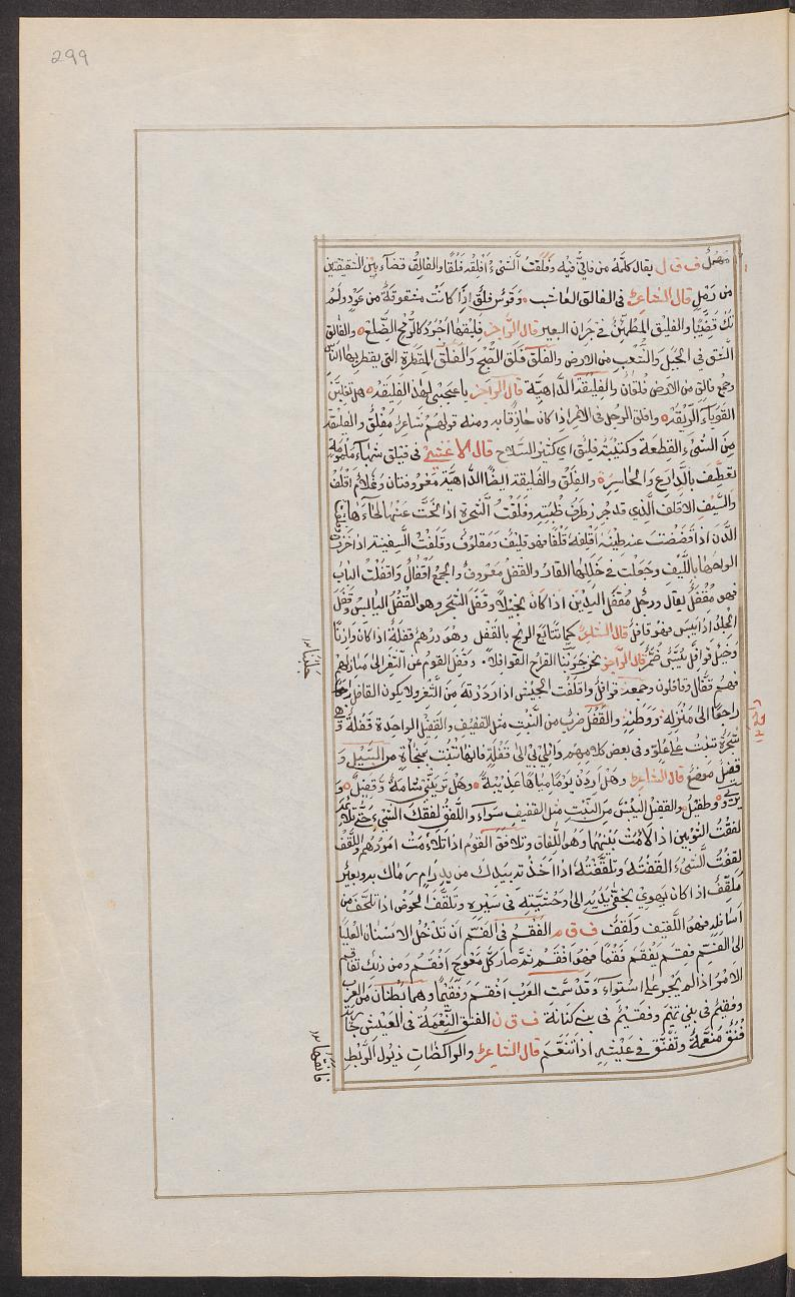 299
مهمل ف ق ل يقال كلّمه من فالق فيه وفلقت الشيء أفلقه فلقا والفالق فضاء بين الشقيقتين
من رمل قال الشاعر في الفالق العاشب وقوس فلق اذا كانت مشقوقة من عود ولم
تك قضيبا والفليق المطمئن في جران البعير قال الراجز فليقها اجرد كالرمح الضلع والفالق
الشق في الجبل والشعب من الارض والفلق فلق الصبح والفلق المقطرة التي يقطر بها الناس
وجمع فالق من الارض فلقان والفليقة الداهية قال الراجز يا عجبي لهذه الفليقه هل تغلبن
القوباء الريقه وافلق الرجل في الامر اذا كان حاذقا به ومنه قولهم شاعر مفلق والفليقة
من الشيء القطعة وكتيبة فيلق اي كثير السلاح قال الاعشى في فيلق شهباء ملمومة
تعطف بالدارع والحاسر والفلق والفليقة ايضا الداهية معروفتان وغلام اقلف
والسيف الاقلف الذي قد حز طرف ظبته وقلفت الشجرة اذا نحت عنها لحاءها
الدن اذا فضضت عنه طينه أقلفه قلفا فهو قليف ومقلوف وقلفت السفينة اذا خرزت
الواحها بالليف وجعلت في خللها القار والقفل معروف والجمع اقفال واقفلت الباب
فهو مقفل يقال ورجل مقفل اليدين اذا كان بخيلا وقفل الشجر وهو القفل اليابس وقفل
الجلد اذا يبس فهو قافل قال الشاعر كما تتابع الريح بالقفل وهو ودرهم قفلة اذا كان وازنا
وخيل قوافل يبس ضمر قال الراجز نحن جوبنا القارح القوافلا وقفل القوم عن الثغر الى منازلهم
فهم قفال وقافلون وجمعه قوافل واقفلت الجيش اذا رددته من الثغر ولا يكون القافل الا
راجعا الى منزله ووطنه والقفل ضرب من النبت مثل القفيف والقفل الواحدة قفلة وهي
شجرة تنبت على غلو وفي بعض كلامهم وايلي بي الى قفلة فانها تنبت بمنجاة من السيل و
قفيل موضع قال الشاعر وهل اردن يوما مياها عذيبة وهل تريني شامة وقفيل و
يروى وطفيل والقفيل اليبس من النبت مثل القفيف سواء واللفق لفقك الشيء حتى تلائمه
لفقت الثوبين اذا لاءمت بينهما وهو اللفاق وتلافق القوم اذا تلاءمت امورهم واللقف
لقفت الشيء القفته وتلقفته اذا اخذته بيديك من يد رام رماك به وبعير
متلقف اذا كان يهوي بخفي يديه الى وحشيته في سيره وتلقف الحوض اذا تلجف من
اسافله فهو اللقيف ولقف ف ق م الفقم في الفم ان تدخل الاسنان العليا
الى الفم فقم يفقم فقما فهو افقم ثم صار كل معوج افقم ومن ذلك تفاقم
الامر اذا لم يجر على استواء وقد سمت العرب افقم وفقيما وهما بطنان من العرب
وفقيم في بني تميم وفقيم في بني كنانة ف ق ن الفنق النعمة في العيش جارية
فنق منعمة وتفنق في عيشه اذا تنعم قال الشاعر والراكضات ذيول الريط
فانقها